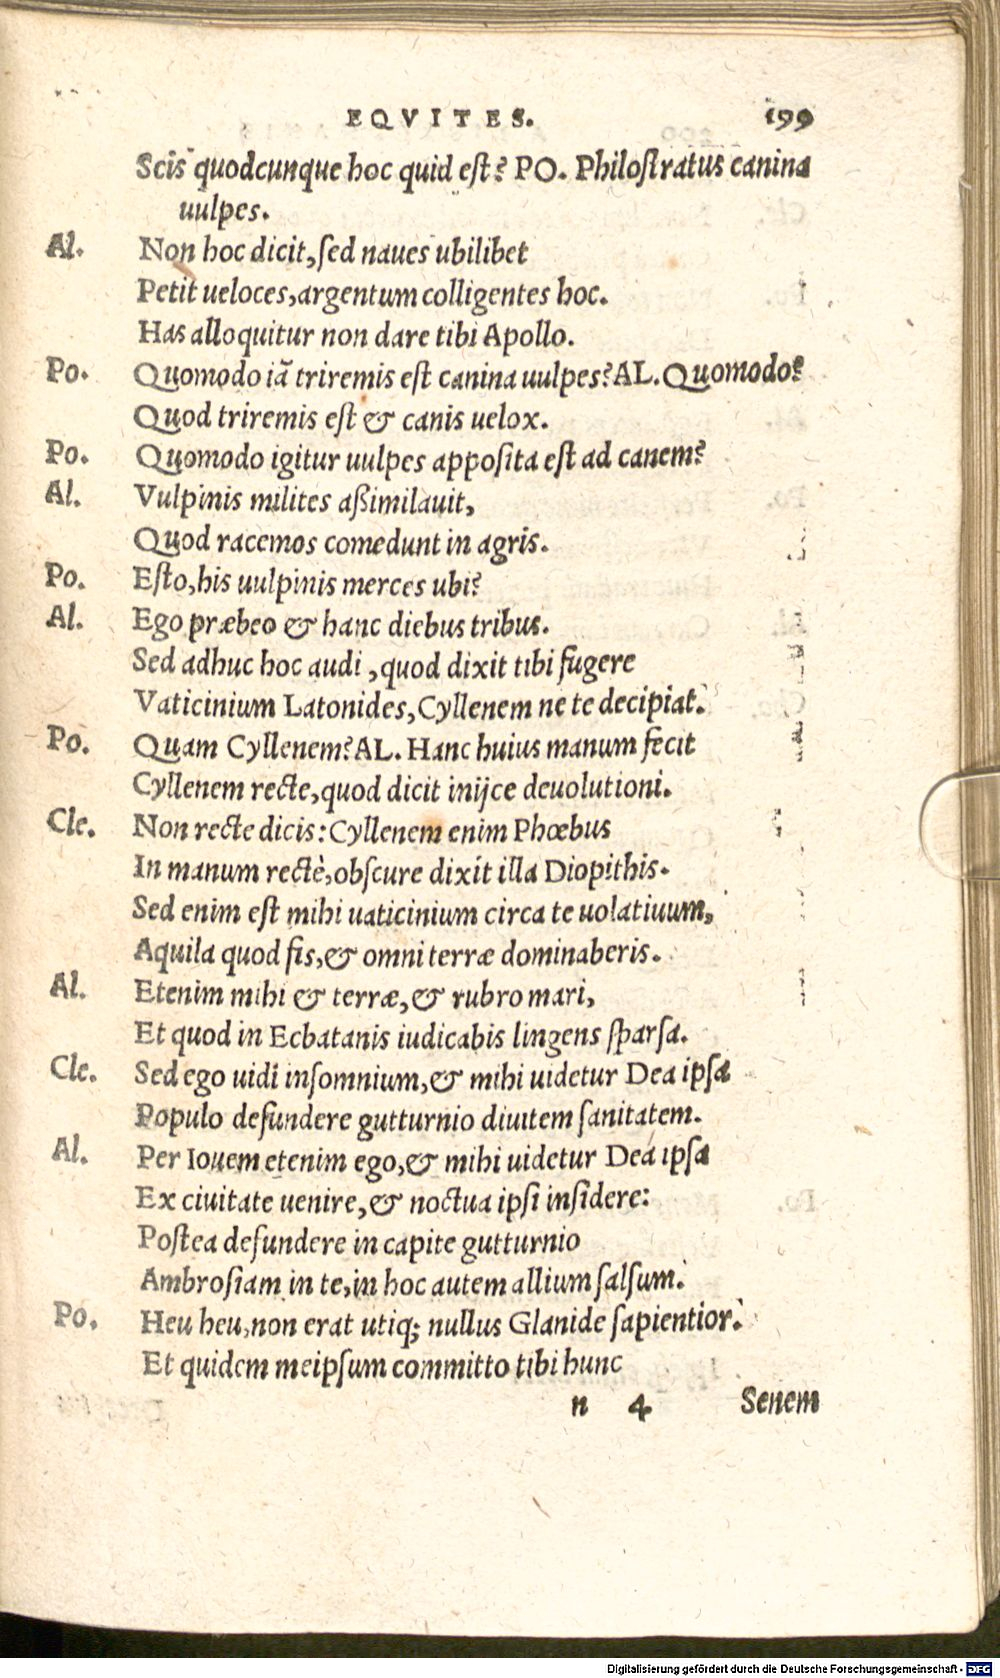 EQVITES. 199
Scis quodcunque hoc quid est? PO. Philostratus canina
uulpes.
Al. Non hoc dicit, sed naues ubilibet
Petit ueloces, argentum colligentes hoc.
Has alloquitur non dare tibi Apollo.
Po. Quomodo iã triremis est canina uulpes? AL. Quomodo?
Quod triremis est & canis uelox.
Po. Quomodo igitur uulpes apposita est ad canem?
Al. Vulpinis milites aßimilauit,
Quod racemos comedunt in agris.
Po. Esto, his uulpinis merces ubi?
Al. Ego præbeo & hanc diebus tribus.
Sed adhuc hoc audi, quod dixit tibi fugere
Vaticinium Latonides, Cyllenem ne te decipiat.
Po. Quam Cyllenem? AL. Hanc huius manum fecit
Cyllenem recte, quod dicit inijce deuolutioni.
Cle. Non recte dicis: Cyllenem enim Phœbus
In manum rectè, obscure dixit illa Diopithis.
Sed enim est mihi uaticinium circa te uolatiuum,
Aquila quod fis, & omni terræ dominaberis.
Al. Etenim mihi & terræ, & rubro mari,
Et quod in Ecbatanis iudicabis lingens sparsa.
Cle. Sed ego uidi insomnium, & mihi uidetur Dea ipsa
Populo defundere gutturnio diuitem sanitatem.
Al. Per Iouem etenim ego, & mihi uidetur Dea ipsa
Ex ciuitate uenire, & noctua ipsi insidere:
Postea defundere in capite gutturnio
Ambrosiam in te, in hoc autem allium salsum.
Po. Heu heu, non erat utiq; nullus Glanide sapientior.
Et quidem meipsum committo tibi hunc
n 4 Senem
Digitalisierung gefördert durch die Deutsche Forschungsgemeinschaft - DFG